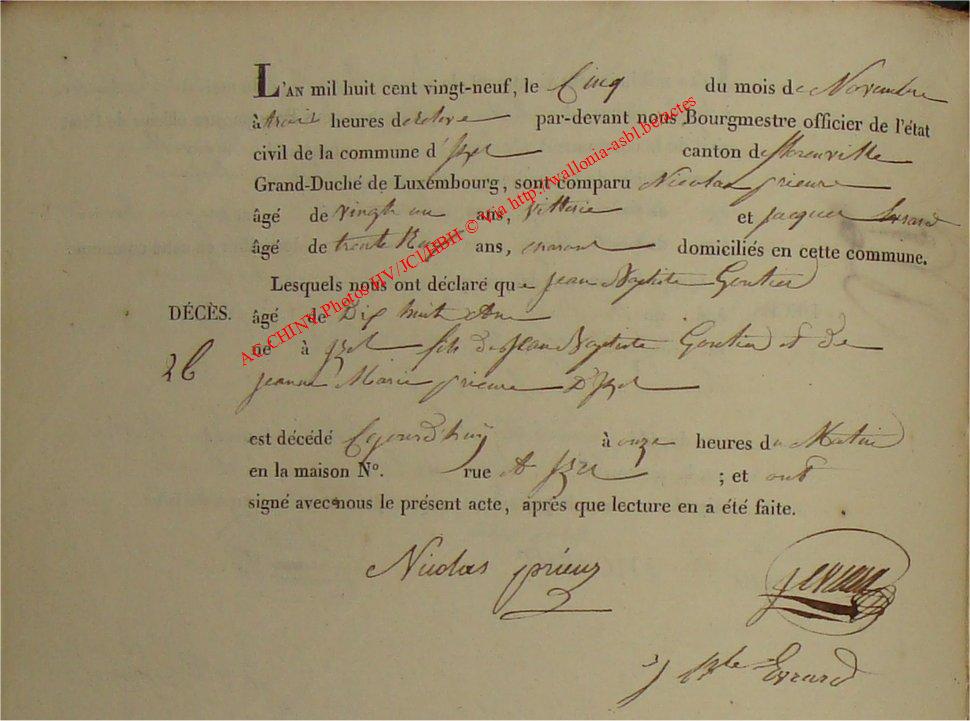 L'AN mil huit cent vingt-neuf, le Cinq du mois de Novembre
à trois heures de releve par-devant nous Bourgmestre officier de l'état
civil de la commune d'Izel canton de florenville
Grand-Duché de Luxembourg, sont comparu Nicolas prieur
âgé de vingt un ans, et jacques Evrard
âgé de trente ans, domiciliés en cette commune.
Lesquels nous ont déclaré que jean Baptiste Gontier
DÉCÈS. âgé de Dix huit Ans
né à izel fils de jean Baptiste Gontier et de
26
jeanne Marie prieur D'izel
est décédé à onze heures du Matin
en la maison N°. rue A izel ; et ont
signé avec nous le présent acte, après que lecture en a été faite.
Nicolas prieur
j evrard
j Bte Evrard
AG CHINY Photos HV/JCL/HBH © via http://wallonia-asbl.be/actes